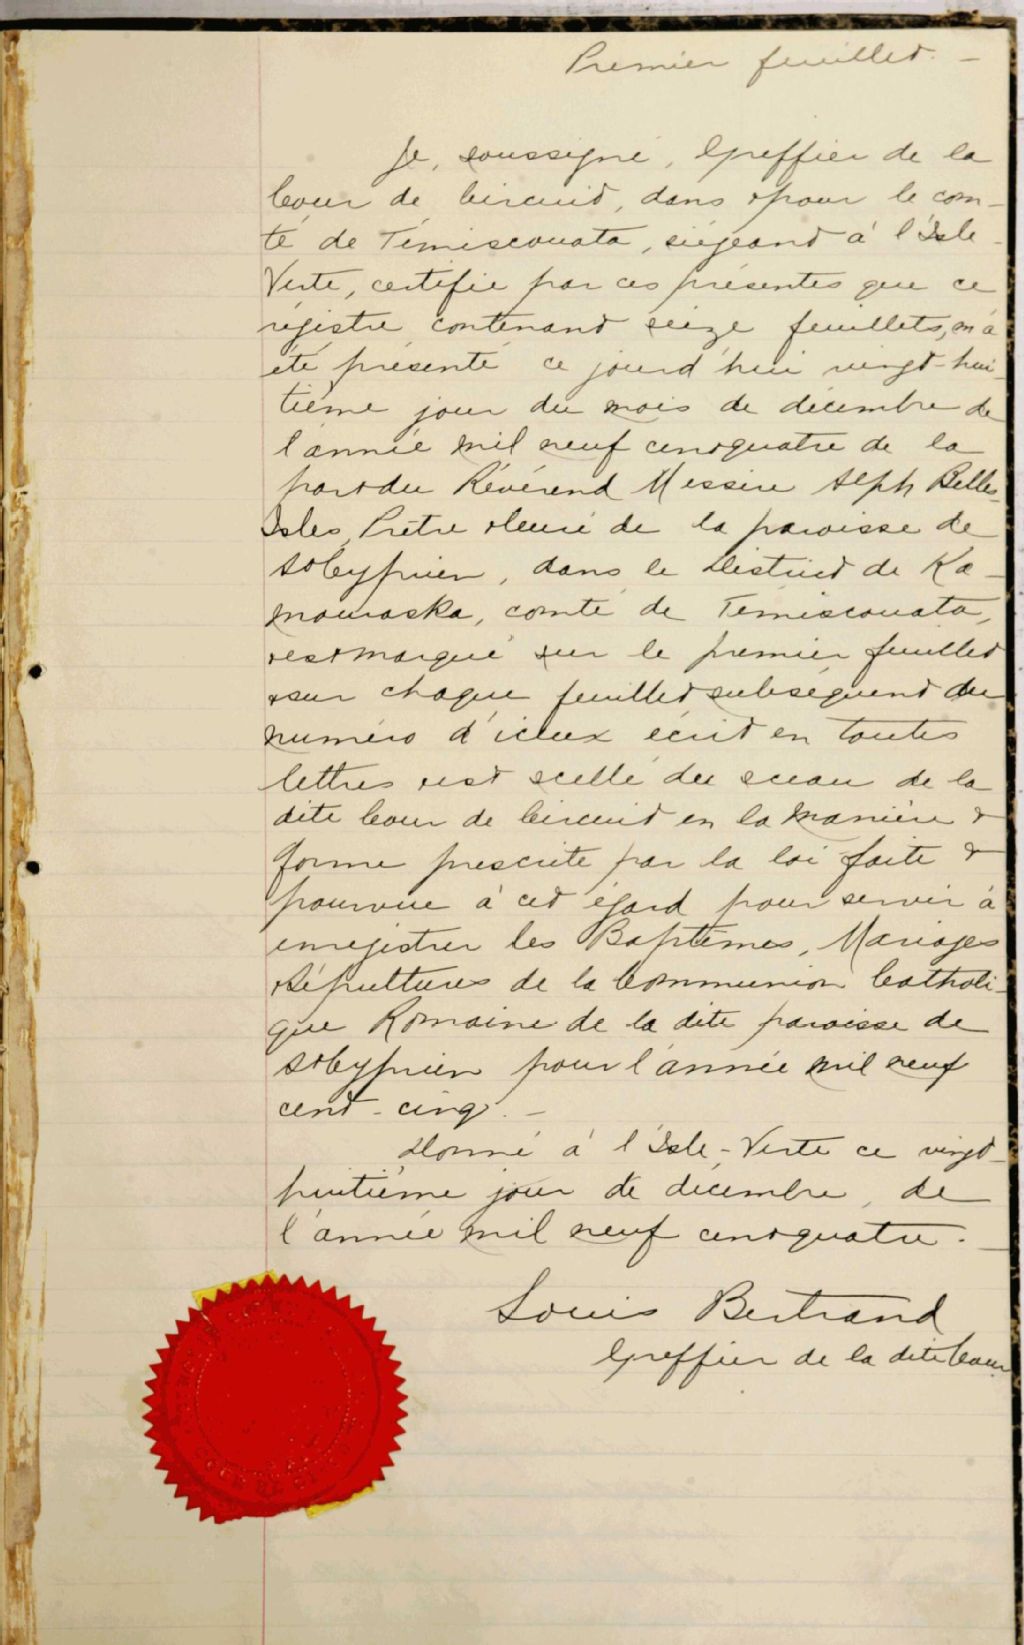 Premier feuillet. —
Je, soussigné, Greffier de la
Cour de Circuit, dans & pour le com-
té de Témiscouata, siégeant à l'Isle-
Verte, certifie par ces présentes que ce
régistre contenant seize feuillets, m'a
été présenté ce jourd'hui vingt-hui-
tième jour du mois de décembre de
l'année mil neuf cent quatre de la
part du Révérend Messire Alph Belles-
Isles, Prêtre & Curé de la paroisse de
St Cyprien, dans le District de Ka-
mouraska, comté de Témiscouata,
& est marqué sur le premier feuillet
& sur chaque feuillet subséquent du
numéro d'iceux écrit en toutes
lettres & est scellé du sceau de la
dite Cour de Circuit en la manière &
forme prescrite par la loi faite &
pourvue à cet égard pour servir à
enregistrer les Baptêmes, Mariages
& Sépultures de la Communion Catholi-
que Romaine de la dite paroisse de
St Cyprien pour l'année mil neuf
cent-cinq. —
Donné à l'Isle-Verte ce vingt-
huitième jour de décembre, de
l'année mil neuf cent quatre. —
Louis Bertrand
Greffier de la dite Cour